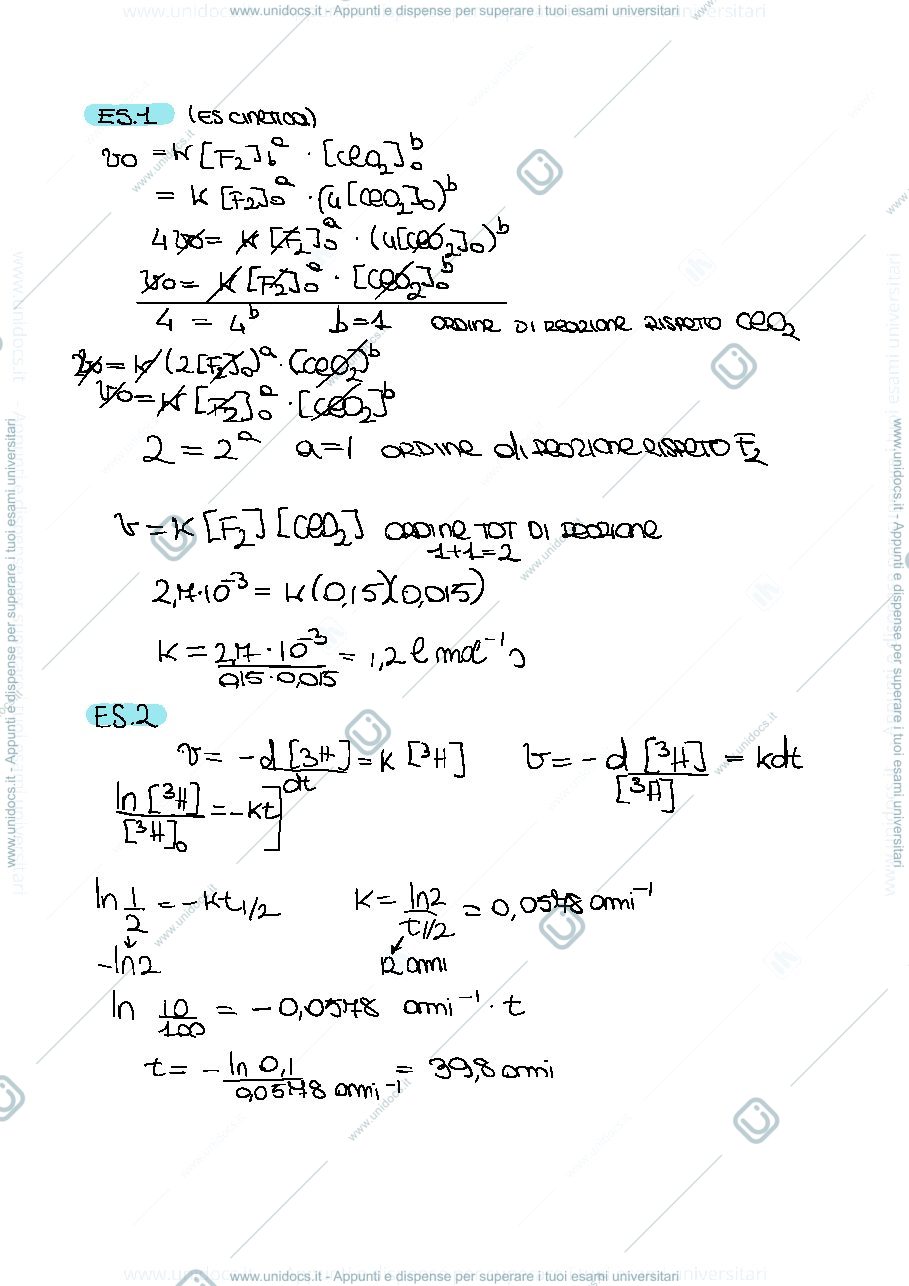 www.unidocs.it - Appunti e dispense per superare i tuoi esami universitari
ES.1 (ES CINETICA)
v0 = K [F2]b^a · [ClO2]0^b
= K [F2]0^a · (4[ClO2]0)^b
4v0 = K [F2]0^a · (4[ClO2]0)^b
v0 = K [F2]0^a · [ClO2]0^b
4 = 4^b b=1 ORDINE DI REAZIONE RISPETO ClO2
v0 = K (2[F2]0)^a · [ClO2]^b
v0 = K [F2]0^a · [ClO2]^b
2 = 2^a a=1 ORDINE di REAZIONE RISPETO F2
v = K [F2] [ClO2] ORDINE TOT DI REAZIONE
1+1=2
2,7·10^-3 = K (0,15)(0,015)
K = 2,7 · 10^-3 / 0,15 · 0,015 = 1,2 l mol^-1 s
ES.2
v = - d [3H] / dt = K [³H] v = - d [³H] / [³H] = kdt
ln [³H] / [³H]0 = -Kt]
ln 1/2 = -Kt1/2 K = ln2 / t1/2 = 0,0578 anni^-1
-ln2 12 anni
ln 10/100 = -0,0578 anni^-1 · t
t = - ln 0,1 / 0,0578 anni^-1 = 39,8 anni
www.unidocs.it - Appunti e dispense per superare i tuoi esami universitari